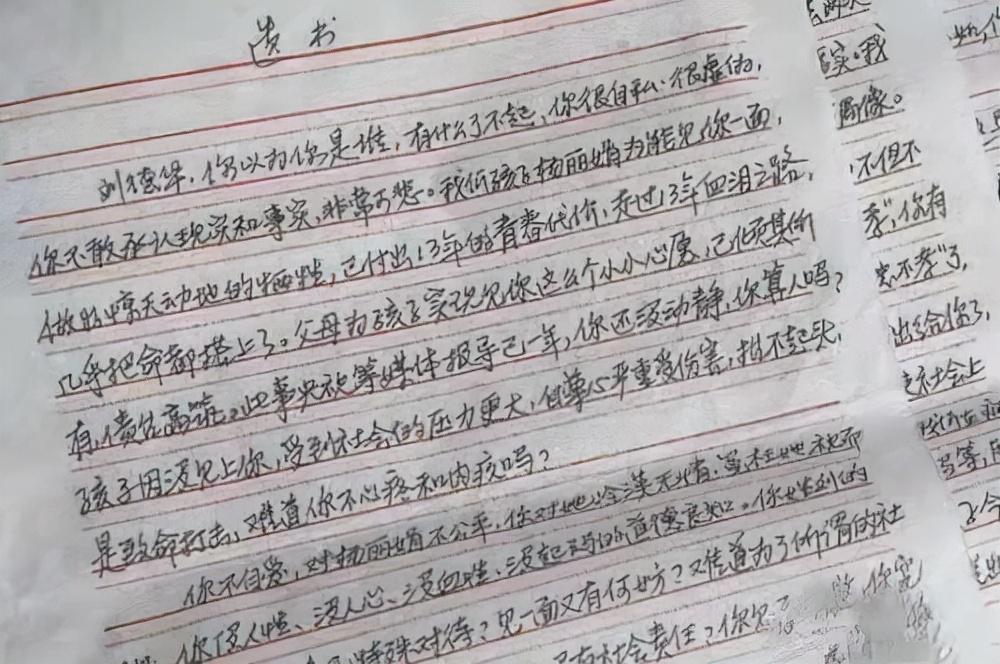 遗书
刘德华,你以为你是谁,有什么了不起,你很自私、很虚伪,
你不敢承认现实和事实,非常可悲。我低孩子杨丽娟为能见你一面,
做出惊天动地的牺牲,已付出13年的青春代价,走过13年血泪之路,
几乎把命都搭上了。父母为孩子实现见你这么个小小心愿,已倾其所
有,债台高筑。此事央视等媒体报导已一年,你还没动静,你算人吗?
孩子因没见上你,受到社会的压力更大,自尊心严重受伤害,抬不起头,
是致命打击,难道你不心疼和内疚吗?
你不自爱,对杨丽娟不公平,你对她冷漠无情,
你没人性、没人心、没血性、没起码的道德良心。
特殊对待?见一面又有何妨?难道为了所谓的社
社会责任?你见
实。我
偶像。
,不但不
孝,你有
不孝了,
出给你了,
社会上
你